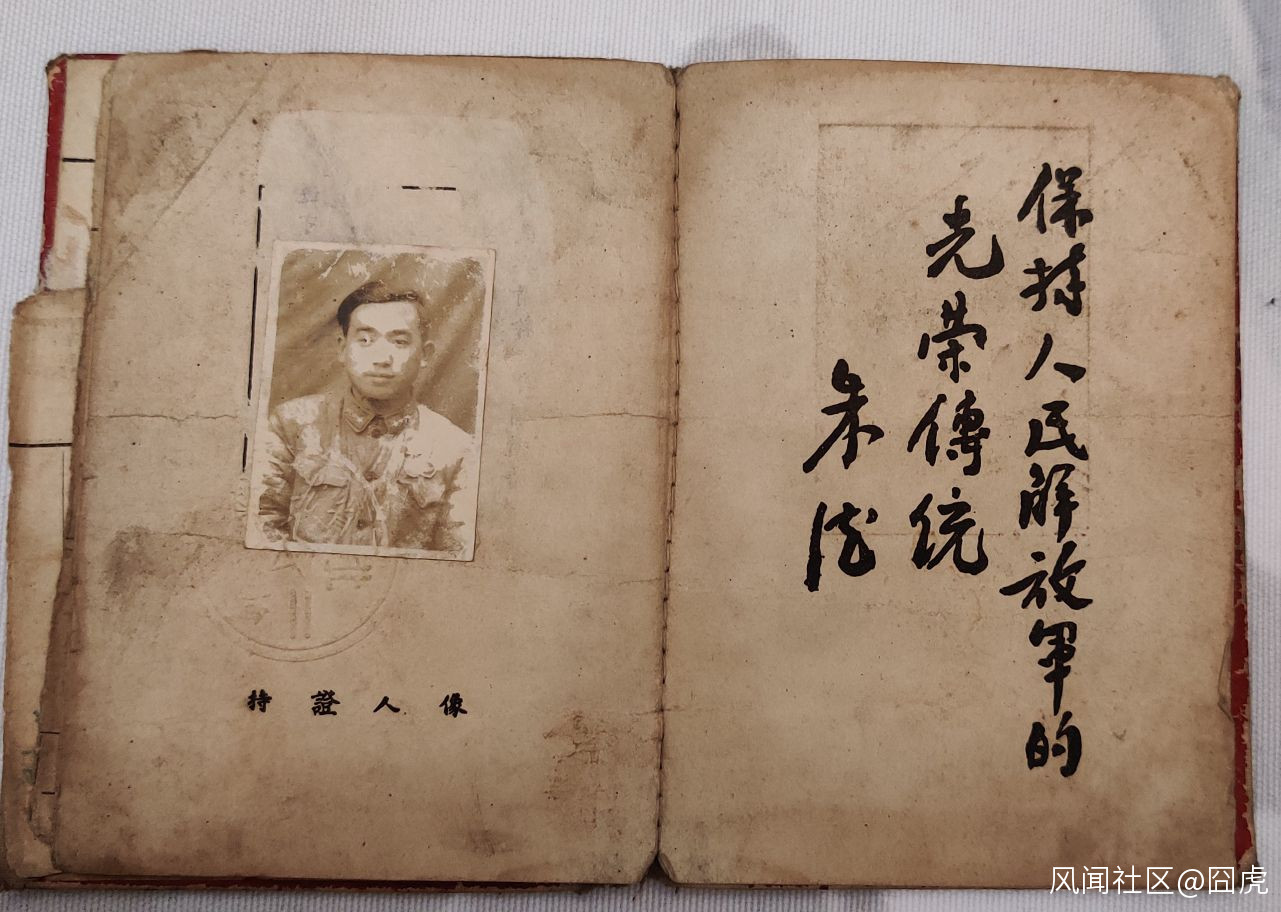 保持人民解放军的
光荣傳统
朱德
持證人像
风闻社区@囧虎